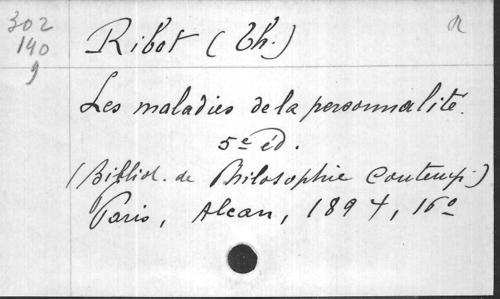 302
140
9
Ribot (Th.)
R
Les maladies de la personnalité.
5e éd.
(Bibliot. de Philosophie Contemp.)
Paris, Alcan, 1894, 16o